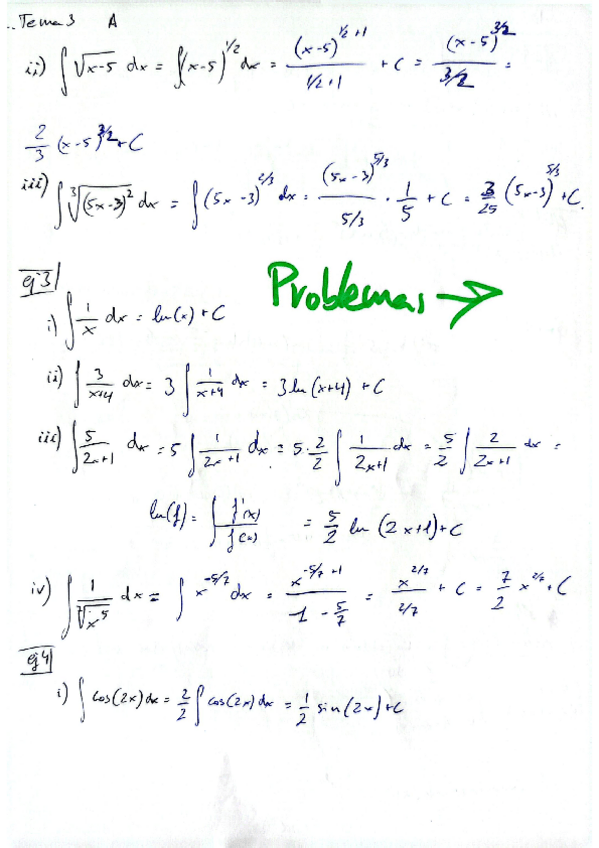 Tema 3 A
ii) ∫ √(x-5) dx = ∫(x-5)^{1/2} dx = (x-5)^{1/2 +1} / (1/2 +1) + C = (x-5)^{3/2} / (3/2) =
2/3 (x-5)^{3/2} + C
iii) ∫ ∛((5x-3)^2) dx = ∫ (5x-3)^{2/3} dx = (5x-3)^{5/3} / (5/3) · 1/5 + C = 3/25 (5x-3)^{5/3} + C.
ej 3
Problemas →
i) ∫ 1/x dx = ln(x) + C
ii) ∫ 3/(x+4) dx = 3 ∫ 1/(x+4) dx = 3 ln (x+4) + C
iii) ∫ 5/(2x+1) dx = 5 ∫ 1/(2x+1) dx = 5 · 2/2 ∫ 1/(2x+1) dx = 5/2 ∫ 2/(2x+1) dx =
ln(f) = ∫ f'(x)/f(x) = 5/2 ln (2x+1) + C
iv) ∫ 1/⁷√(x^5) dx = ∫ x^{-5/7} dx = x^{-5/7 +1} / (1 - 5/7) = x^{2/7} / (2/7) + C = 7/2 x^{2/7} + C
ej 4
i) ∫ cos(2x) dx = 2/2 ∫ cos(2x) dx = 1/2 sin(2x) + C